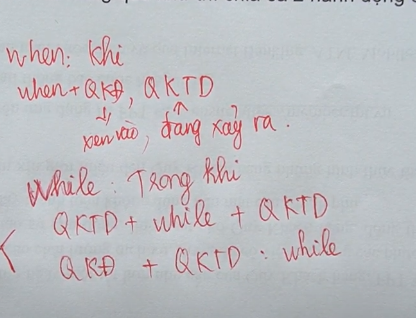 when: khi
when + QKĐ, QKTD
xen vào, đang xảy ra.
While: Trong khi
QKTD + while + QKTD
QKĐ + QKTD : while